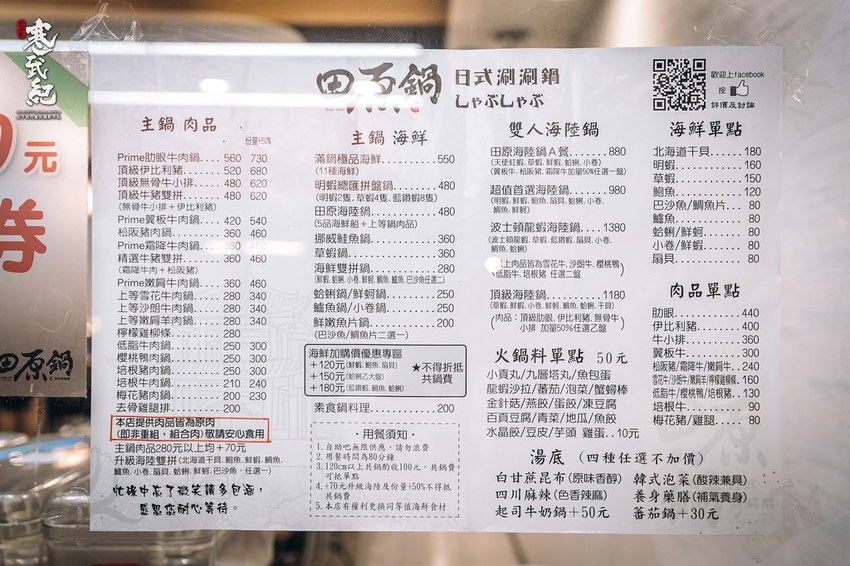 寒武紀
元
券
田原鍋
田原鍋
日式涮涮鍋
しゃぶしゃぶ
歡迎上facebook
按
評價及討論
主鍋 肉品
份量+50%
Prime肋眼牛肉鍋.... 560 730
頂級伊比利豬........ 520 680
頂級無骨牛小排..... 480 620
頂級牛豬雙拼........ 480 620
(無骨牛小排+伊比利豬)
Prime翼板牛肉鍋... 420 540
松阪豬肉鍋........... 360 460
Prime霜降牛肉鍋... 360 460
精選牛豬雙拼........ 360 460
(霜降牛肉+松阪豬)
Prime嫩肩牛肉鍋... 360 460
上等雪花牛肉鍋..... 280 340
上等沙朗牛肉鍋..... 280 340
上等嫩肩羊肉鍋..... 280 340
檸檬雞柳條........... 280
低脂牛肉鍋........... 250 300
櫻桃鴨肉鍋........... 250 300
培根豬肉鍋........... 250 300
培根牛肉鍋........... 210 240
梅花豬肉鍋........... 200 230
去骨雞腿排........... 200
本店提供肉品皆為原肉
(即非重組,組合肉)敬請安心食用
主鍋肉品280元以上均+70元
升級海陸雙拼(北海道干貝、鮑魚、鮮蚵、鮮蝦、
鱸魚、小卷、扇貝、蛤蜊、巴沙魚、任選一)
忙碌中忘了微笑請多包涵,
感恩您耐心等待。
主鍋 海鮮
滿鍋極品海鮮........... 550
(11種海鮮)
明蝦總匯拼盤鍋........ 480
(明蝦2隻、草蝦4隻、藍鑽蝦8隻)
田原海陸鍋.............. 480
(5品海鮮船+上等鍋肉品)
挪威鮭魚鍋.............. 360
草蝦鍋.................... 360
海鮮雙拼鍋.............. 280
(鮮蝦、蛤蜊、小卷、鮮蚵、鯛魚、鱸魚、巴沙魚任選二)
蛤蜊鍋/鮮蚵鍋.......... 250
鱸魚鍋/小卷鍋.......... 250
鮮嫩魚片鍋.............. 200
(巴沙魚/鯛魚片二選一)
海鮮加購價優惠專區
+120元(鮮蝦、鮑魚、扇貝)
+150元(蛤蜊乙大盤)
+180元(藍鑽蝦、鯛魚、蛤蜊)
★不得折抵
共鍋費
素食鍋料理.............. 200
・用餐須知・
1.自助吧無限供應,請勿浪費
2.用餐時間為80分鐘
3.120cm以上共鍋酌收100元,共鍋費
可抵單點
4.+70元升級海陸及份量+50%不得抵
共鍋費
5.本店有權利更換同等值海鮮食材
雙人海陸鍋
田原海陸鍋A餐........ 880
(天使紅蝦、草蝦、鮮蝦、蛤蜊、小卷)
(翼板牛、松阪豬、霜降牛加量50%任選一盤)
超值首選海陸鍋........ 980
(明蝦、鮮蝦、鮑魚、扇貝、蛤蜊、小卷、
鯛魚、鮮蚵)
波士頓龍蝦海陸鍋.... 1380
(波士頓龍蝦、草蝦、藍鑽蝦、扇貝、小卷、
鯛魚、蛤蜊)
(以上肉品皆為雪花牛、沙朗牛、櫻桃鴨
低脂牛、培根豬 任選二盤)
頂級海陸鍋.............. 1180
(草蝦、鮮蝦、小卷、鮮蚵、鯛魚、蛤蜊、干貝)
(肉品:頂級肋眼、伊比利豬、無骨牛
小排 加量50%任選乙盤)
火鍋料單點 50元
小貢丸/九層塔丸/魚包蛋
龍蝦沙拉/蕃茄/泡菜/蟹味棒
金針菇/燕餃/蛋餃/凍豆腐
百頁豆腐/青菜/地瓜/魚餃
水晶餃/豆皮/芋頭 雞蛋..10元
海鮮單點
北海道干貝...... 180
明蝦.............. 160
草蝦.............. 150
鮑魚.............. 120
巴沙魚/鯛魚片... 80
鱸魚.............. 80
蛤蜊/鮮蚵........ 80
小卷/鮮蝦........ 80
扇貝.............. 80
肉品單點
肋眼.............. 440
伊比利豬......... 400
牛小排........... 360
翼板牛........... 300
松阪豬/霜降牛/嫩肩牛.. 240
雪花牛/沙朗牛/嫩肩羊/檸檬雞柳條.. 160
低脂牛/櫻桃鴨/培根豬.. 130
培根牛............ 90
梅花豬/雞腿...... 80
湯底 (四種任選不加價)
白甘蔗昆布(原味香醇) 韓式泡菜(酸辣兼具)
四川麻辣(色香辣麻) 養身藥膳(補氣養身)
起司牛奶鍋+50元 蕃茄鍋+30元